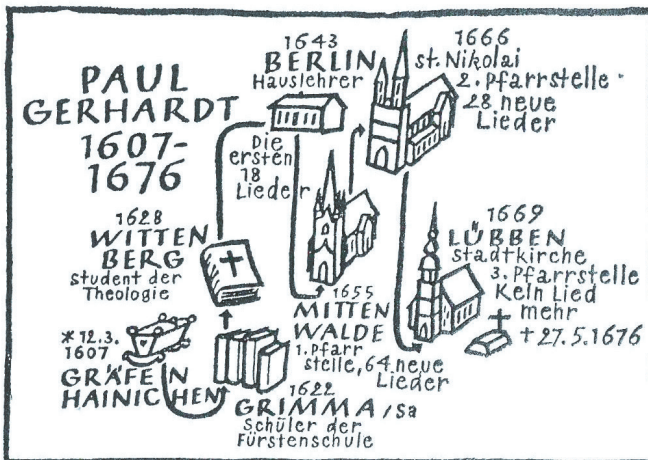 PAUL
GERHARDT
1607-
1676
* 12.3.
1607
GRÄFEN
HAINICHEN
1622
GRIMMA / Sa
Schüler der
Fürstenschule
1628
WITTEN
BERG
student der
Theologie
1643
BERLIN
Hauslehrer
Die
ersten
18
Lieder
1655
MITTEN
WALDE
1. Pfarr
stelle, 64 neue
Lieder
1666
st. Nikolai
2. Pfarrstelle
28 neue
Lieder
1669
LÜBBEN
stadtkirche
3. Pfarrstelle
Kein Lied
mehr
† 27.5.1676